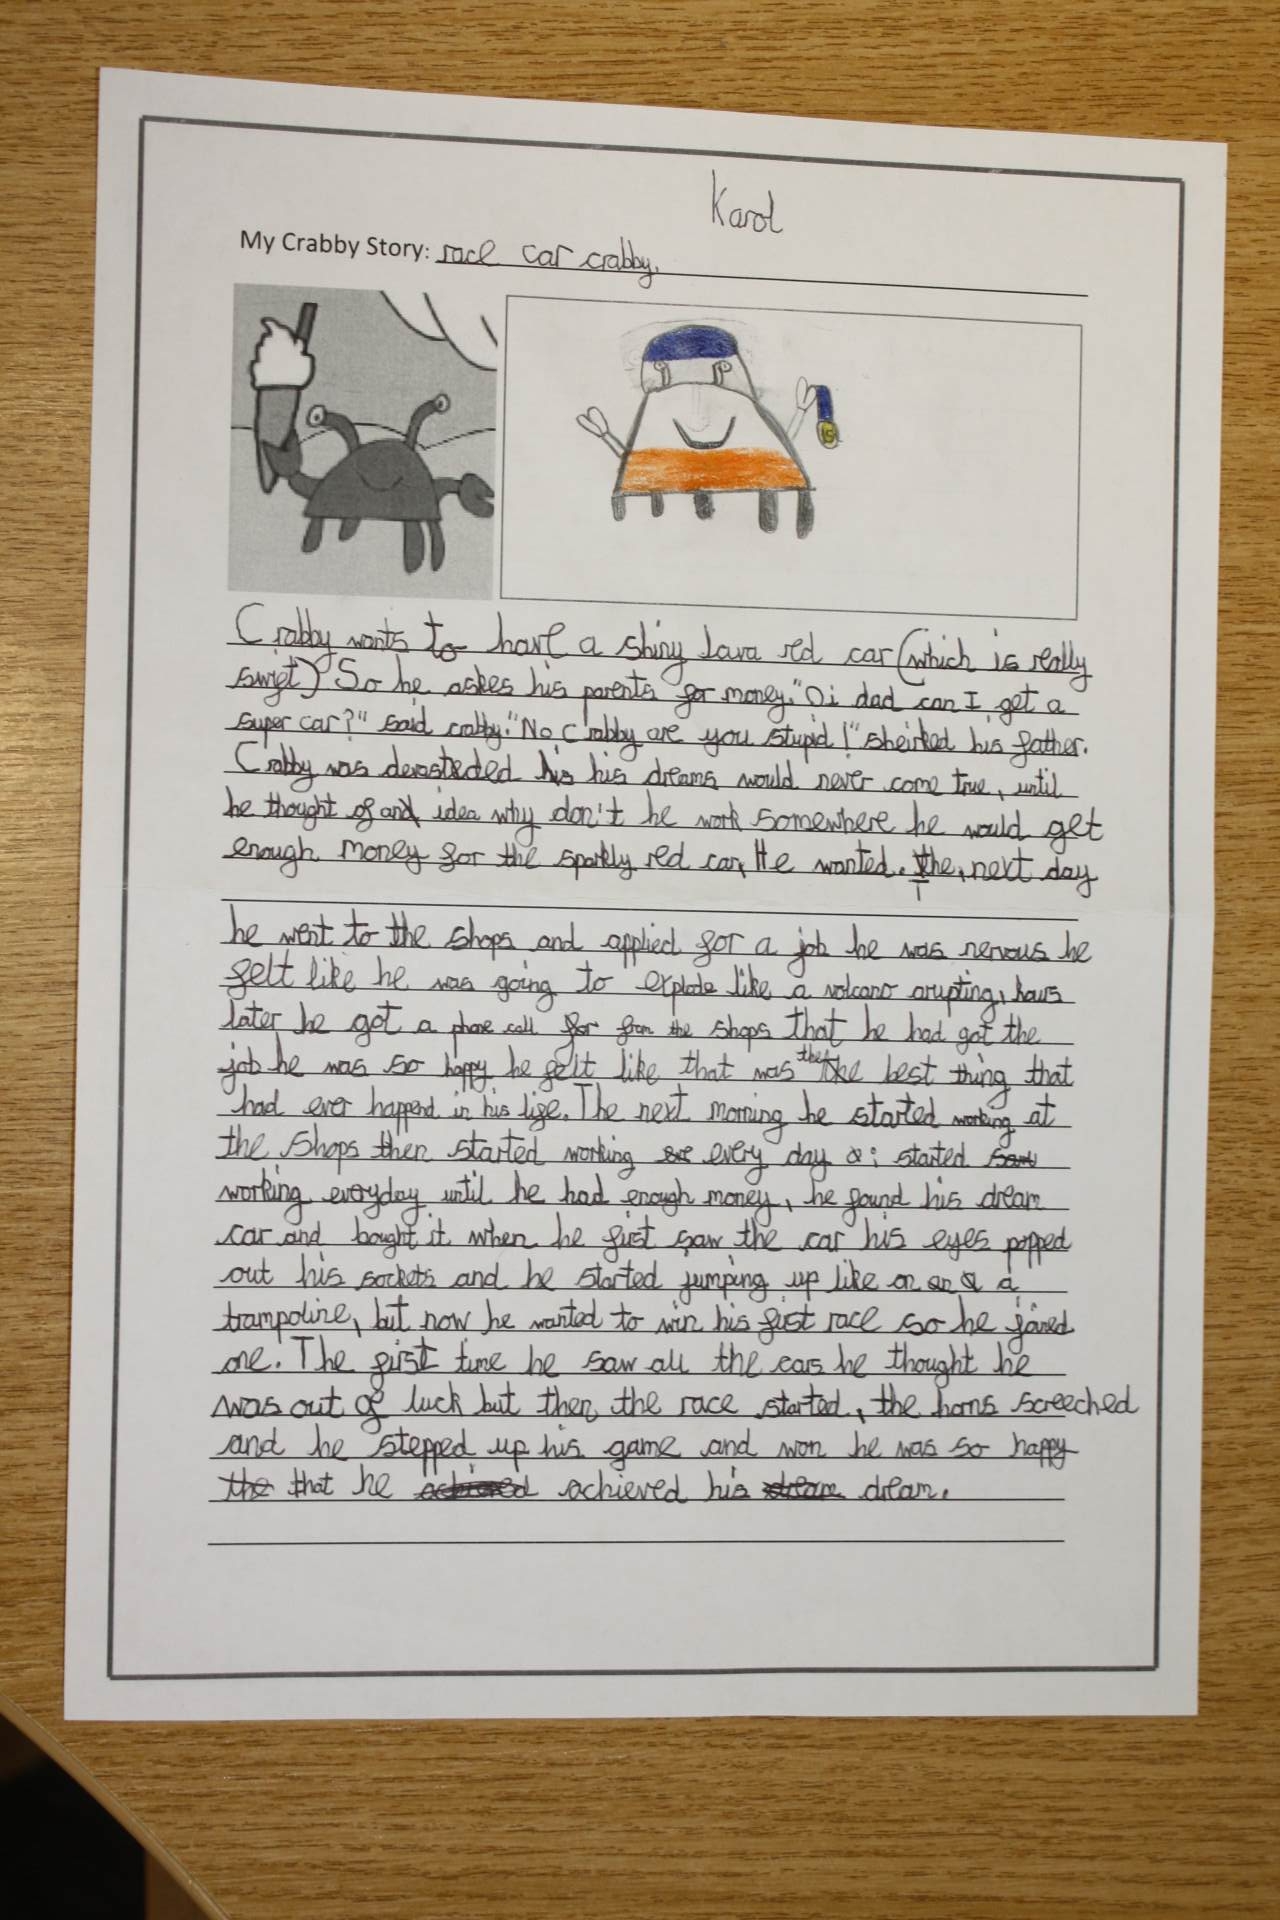 Karol
My Crabby Story: race car crabby.
15
Crabby wants to have a shiny lava red car (which is really
swift) So he askes his parents for money. "Oi dad can I get a
super car?" said crabby. "No Crabby are you stupid!" sheirked his father.
Crabby was devasteded his his dreams would never come true, until
he thought of and idea why don't he work somewhere he would get
enough money for the sparkly red car, He wanted. The, next day
he went to the shops and applied for a job he was nervous he
felt like he was going to explode like a volcano arupting, hours
later he got a phone call for from the shops that he had got the
job he was so happy he felt like that was the the best thing that
had ever happend in his life. The next morning he started working at
the shops then started working every day started
working everyday until he had enough money, he found his dream
car and bought it when he first saw the car his eyes popped
out his sockets and he started jumping up like on a
trampoline, but now he wanted to win his first race so he joined
one. The first time he saw all the cars he thought he
was out of luck but then the race started, the horns screeched
and he stepped up his game and won he was so happy
the that he achieved achieved his dream dream.